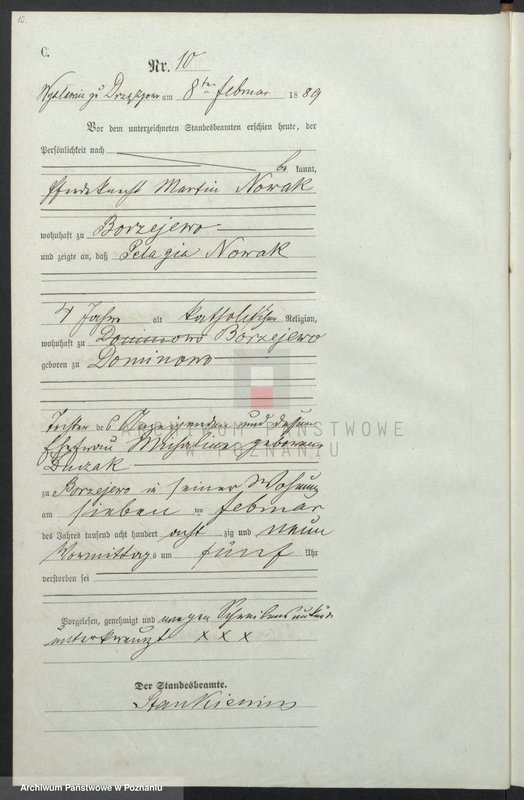 10.
C.
Nr. 10
am 8ten Februar 1889
Vor dem unterzeichneten Standesbeamten erschien heute, der
Persönlichkeit nach
be kannt,
Pferdeknecht Martin Nowak
wohnhaft zu Borzejewo
und zeigte an, daß Pelagia Nowak
4 Jahre alt katholischer Religion,
wohnhaft zu Dominowo Borzejewo
geboren zu Dominowo
Tochter des Anzeigenden und dessen
ARCHIWUM PAŃSTWOWE
Ehefrau Michalina geborene
W POZNANIU
zu Borzejewo in seiner Wohnung
am sieben ten Februar
des Jahres tausend acht hundert acht zig und neun
Vormittags um fünf Uhr
verstorben sei
Vorgelesen, genehmigt und wegen Schreibensunkunde
unterkreuzt x x x
Der Standesbeamte.
Archiwum Państwowe w Poznaniu